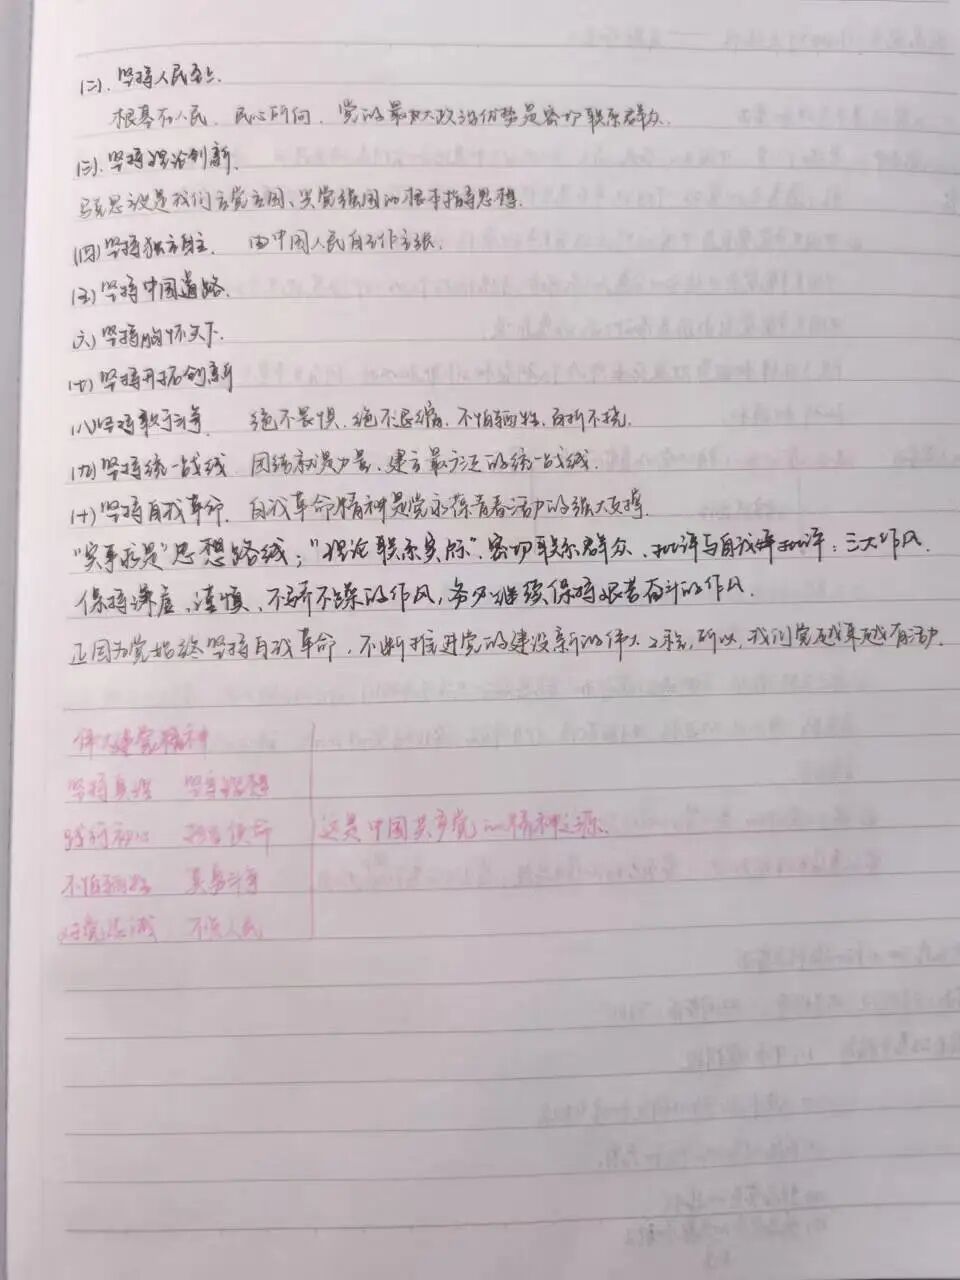 (二)、坚持人民至上.
根基在人民，民心所向，党的最大政治优势是密切联系群众.
(三)、坚持理论创新.
马克思主义是我们立党立国、兴党强国的根本指导思想.
(四)坚持独立自主. 由中国人民自己作主张.
(五)坚持中国道路.
六)坚持胸怀天下.
(七)坚持开拓创新
(八)坚持敢于斗争. 绝不畏惧，绝不退缩，不怕牺牲，百折不挠.
(九)坚持统一战线. 团结就是力量，建立最广泛的统一战线.
(十)坚持自我革命. 自我革命精神是党永葆青春活力的强大支撑.
"实事求是"思想路线；"理论联系实际"、密切联系群众、批评与自我批评：三大作风.
保持谦虚、谨慎、不骄不躁的作风，务必继续保持艰苦奋斗的作风.
正因为党始终坚持自我革命，不断推进党的建设新的伟大工程，所以，我们党越来越有活力.
伟大建党精神
坚持真理 坚守理想
践行初心 担当使命 这是中国共产党的精神之源.
不怕牺牲 英勇斗争
对党忠诚 不负人民